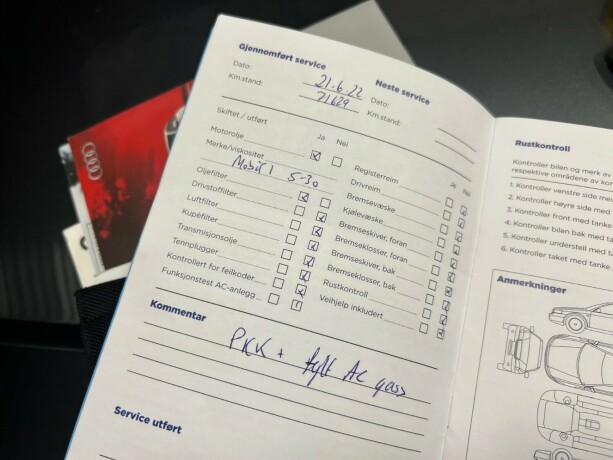 Gjennomført service
Dato: 21.6.22
Km.stand: 71629
Neste service
Dato:
Km.stand:
Skiftet / utført
Ja Nei
Motorolje
Merke/viskositet Mobil 1 5-30
Oljefilter
Drivstoffilter
Luftfilter
Kupéfilter
Transmisjonsolje
Tennplugger
Kontrollert for feilkoder
Funksjonstest AC-anlegg
Ja Nei
Registerreim
Drivreim
Bremsevæske
Kjølevæske
Bremseskiver, foran
Bremseklosser, foran
Bremseskiver, bak
Bremseklosser, bak
Rustkontroll
Veihjelp inkludert
Kommentar
PKK + fylt AC gass
Service utført
Rustkontroll
Kontroller bilen og merk av
respektive områdene av ko
1. Kontroller venstre side med
2. Kontroller høyre side med
3. Kontroller front med tanke
4. Kontroller bilen bak med t
5. Kontroller understell med ta
6. Kontroller taket med tanke
Anmerkninger